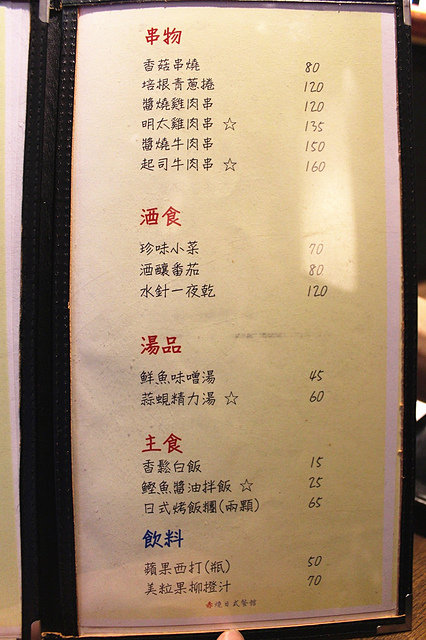 串物
香菇串燒 80
培根青蔥捲 120
醬燒雞肉串 120
明太雞肉串 ☆ 135
醬燒牛肉串 150
起司牛肉串 ☆ 160
酒食
珍味小菜 70
酒釀番茄 80
水針一夜乾 120
湯品
鮮魚味噌湯 45
蒜蜆精力湯 ☆ 60
主食
香鬆白飯 15
鰹魚醬油拌飯 ☆ 25
日式烤飯糰(兩顆) 65
飲料
蘋果西打(瓶) 50
美粒果柳橙汁 70
赤燒日式餐館